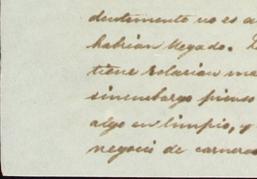 dentemente no es a
habrian llegado. L
tiene rotarian ma
sinembargo pienso
algo en limpio, y
negocio de carneros